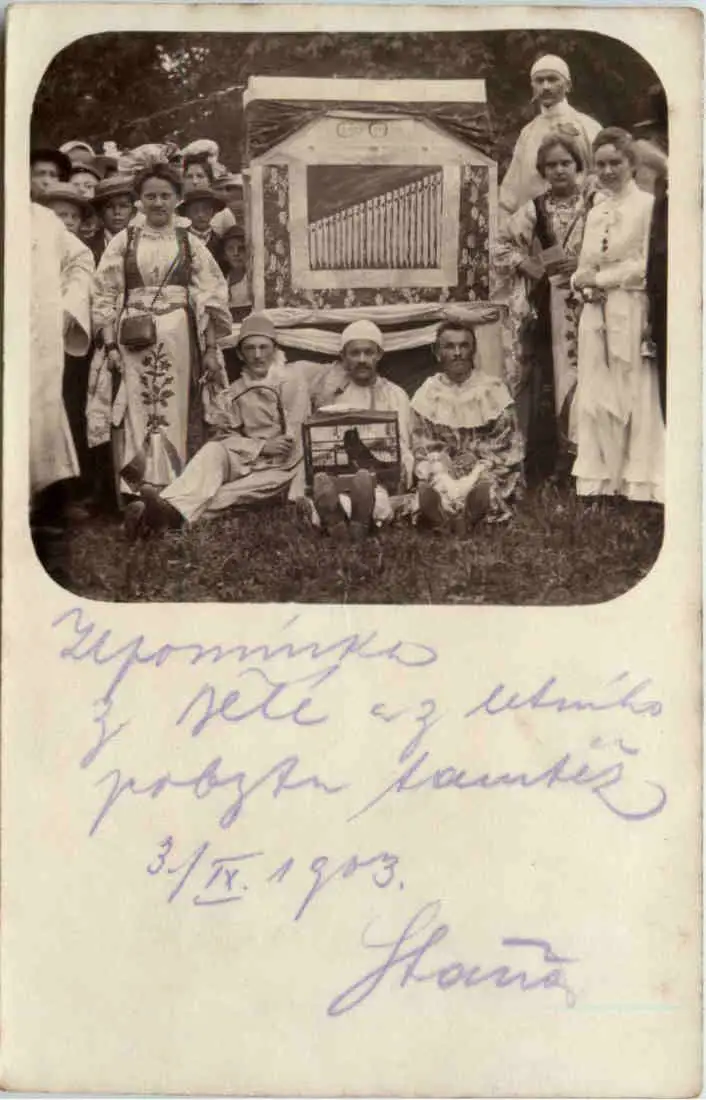 Upomínka
z Řeté a z letního
pobytu tamtéž
3/IX. 1903.
Staňa